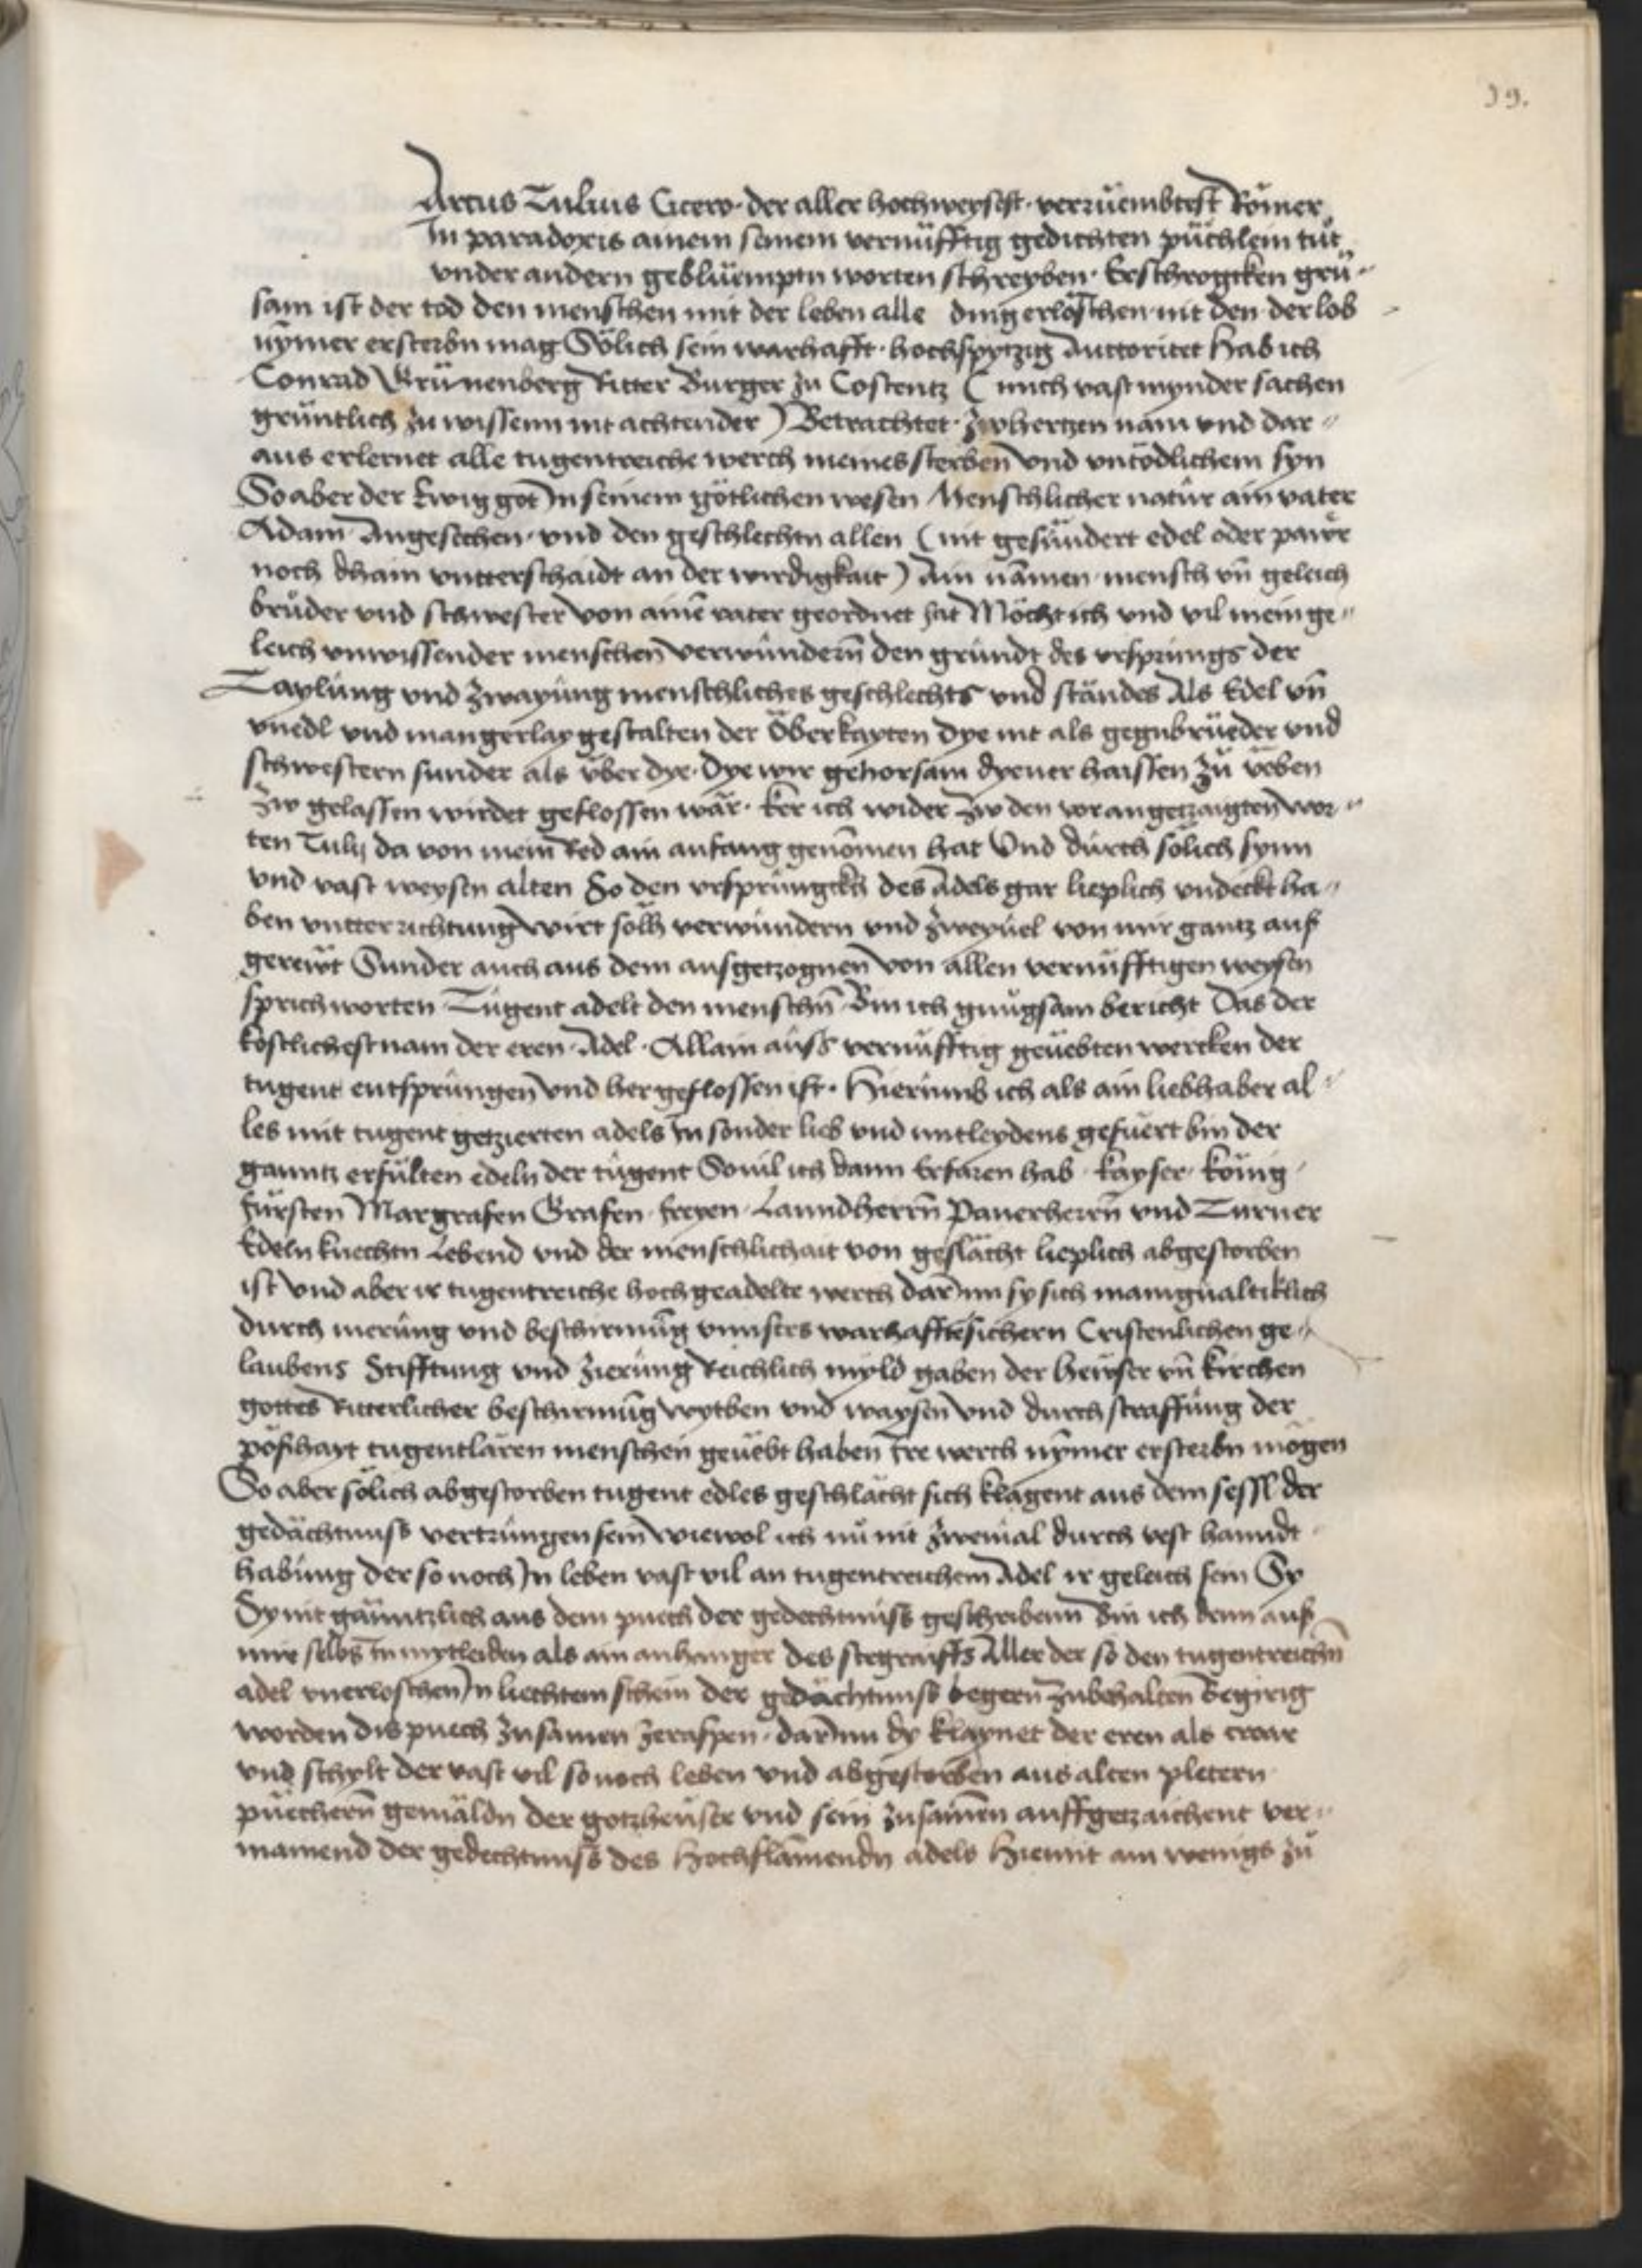 39.
Arcus Tulius Cicero · der aller hochweysest · verrüembtest Römer
In paradoxis ainem seinem vernüfftig gedichten püchlein tüt
vnder andern geblüempten worten schreyben · Erschrogcken grü„
sam ist der tod den menschen mit der leben alle ding erlöschen nit den der lob
nymer ersterbn mag Sölich sein warhafft · hochspytzig Auttoritet Hab ich
Conrad Grünenberg Ritter Burger zu Costentz ( mich vast mynder sachen
gruntlich zu wissenn nit achtender ) Betrachtet · zwhertzen nam vnd dar„
aus erlernet alle tugentreiche werch meines sterben vnd vntödlichem syn
So aber der Ewig got In seinem götlichen wesen Menschlicher natur ain vater
Adam Angesechen · vnd den geschlechtn allen ( nit gesündert edel oder pawr
noch dhain vntterschaidt an der wirdigkait ) Ain namen · mensch vn̄ geleich
bruder vnd schwester von ainē vater geordnet hat Möcht ich vnd vil mein ge„
leich vnwissender menschen̄ verwundern̄ den grundt des vrsprungs der
Taylung vnd zwayung menschliches geschlechts vnd standes Als Edel vn̄
vnedl vnd mangerlay gestalten der Öberkayten dye nit als gegnbrüeder vnd
schwestern sunder als über dye · Dye wir gehorsam dyener haissen zu veben
zw gelassen wirdet geflossen wär · ker ich wider zw den vor angetzaigten̄ wor„
ten Tulij da von mein Red ain anfang genōmen hat Vnd durch sölich synn
vnd vast weysen alten So den vrsprungckh des Adels gar lieplich vndeckt ha„
ben vntterrichtung wirt sölh verwundern vnd zweyuel von mir gantz auß
gerewt Sunder auch aus dem ausgetzognen̄ von allen vernüfftigen weysen
sprichworten Tugent adelt den menschn̄ Bin ich gnugsam bericht Das der
kostlichest nam der eren · Adel · Allain auss vernufftig geuebten wercken der
tugent entsprungen̄ vnd her geflossen ist · Hierumb ich als ain liebhaber al„
les mit tugent getzierten adels In sonder lieb vnd mitleydens gefuert bin der
gantz erfulten edeln der tugent Souil ich dann Erfaren hab · kayser · konig ·
fursten Margrafen Grafen · freyen · Lanndherrn̄ Panerherrn̄ vnd Turner
Edeln knechtn Lebend vnd der menschlichait von geslächt lieplich abgestorben
ist Vnd aber ir tugentreiche hoch geadelte werch darInn sy sich manigualtiklich
durch merung vnd beschirmung vnnsers warhafftesichern Cristenlichen ge„
laubens Stifftung vnd zierung Reichlich myld gaben der hewser vn̄ kirchen
gottes Ritterlicher beschirmūg wytben vnd waysen vnd durch straffung der
poßhayt tugentlären menschen geuebt haben Ire werch nymer ersterbn mögen
So aber sölich abgestorben tugent edles geschlächt sich klagent aus dem sessl der
gedächtnuss vertrungen sein wiewol ich nu nit zweiual durch vest hanndt
habung der so noch In leben vast vil an tugentreichem Adel ir geleich sein Sy
Sy nit gänntzlich aus dem puech der gedechtnuss geschribenn Bin ich denn auß
mir selbs In mytleiden als ain anhanger des stegraiffs Aller der so den tugentreichn̄
adel vnerloschen In liechtem schein der gedächtnuss begern̄ zubehalten Begirig
worden dis puech zusamen zeraspen · darInn dy klaynet der eren als
vnd schylt der vast vil so noch leben vnd abgestorben aus alten pletern
püechern̄ gemäldn der gotzheuser vnd sein zusamen auffgetzaichent ver„
manend der gedechtnuss des Hochflamenden adels Hiemit ain wenigs zu